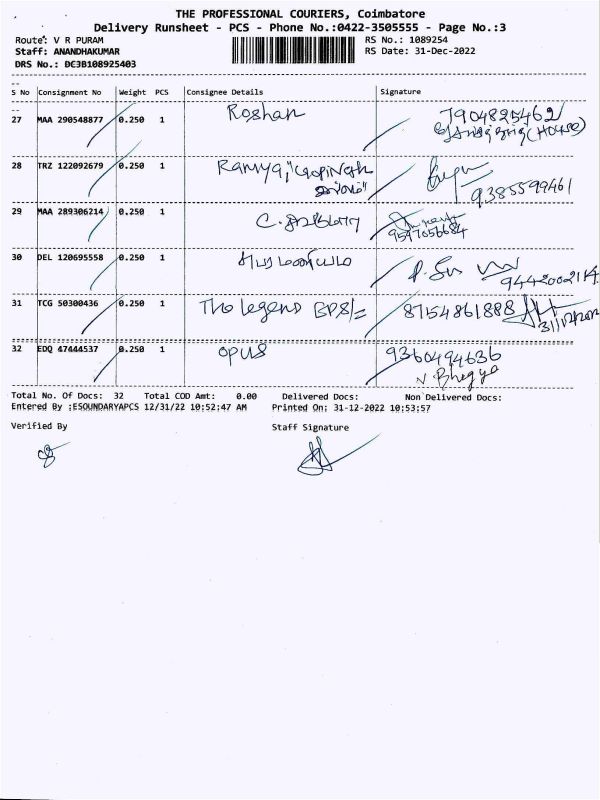 THE PROFESSIONAL COURIERS, Coimbatore
Delivery Runsheet - PCS - Phone No.:0422-3505555 - Page No.:3
Route: V R PURAM
RS No.: 1089254
Staff: ANANDHAKUMAR
RS Date: 31-Dec-2022
DRS No.: DC3B108925403
S No Consignment No Weight PCS Consignee Details Signature
27 MAA 290548877 0.250 1 Roshan 7904825462
(House)
28 TRZ 122092679 0.250 1 Ramya, "Gopinath
9385599461
29 MAA 289306214 0.250 1
9597056684
30 DEL 120695558 0.250 1
9442000211
31 TCG 50300436 0.250 1 The legend 87154861888
31/12/2022
32 EDQ 47444537 0.250 1 opus 9360494636
V. Bhegya
Total No. Of Docs: 32 Total COD Amt: 0.00 Delivered Docs: Non Delivered Docs:
Entered By :ESOUNDARYAPCS 12/31/22 10:52:47 AM Printed On: 31-12-2022 10:53:57
Verified By Staff Signature